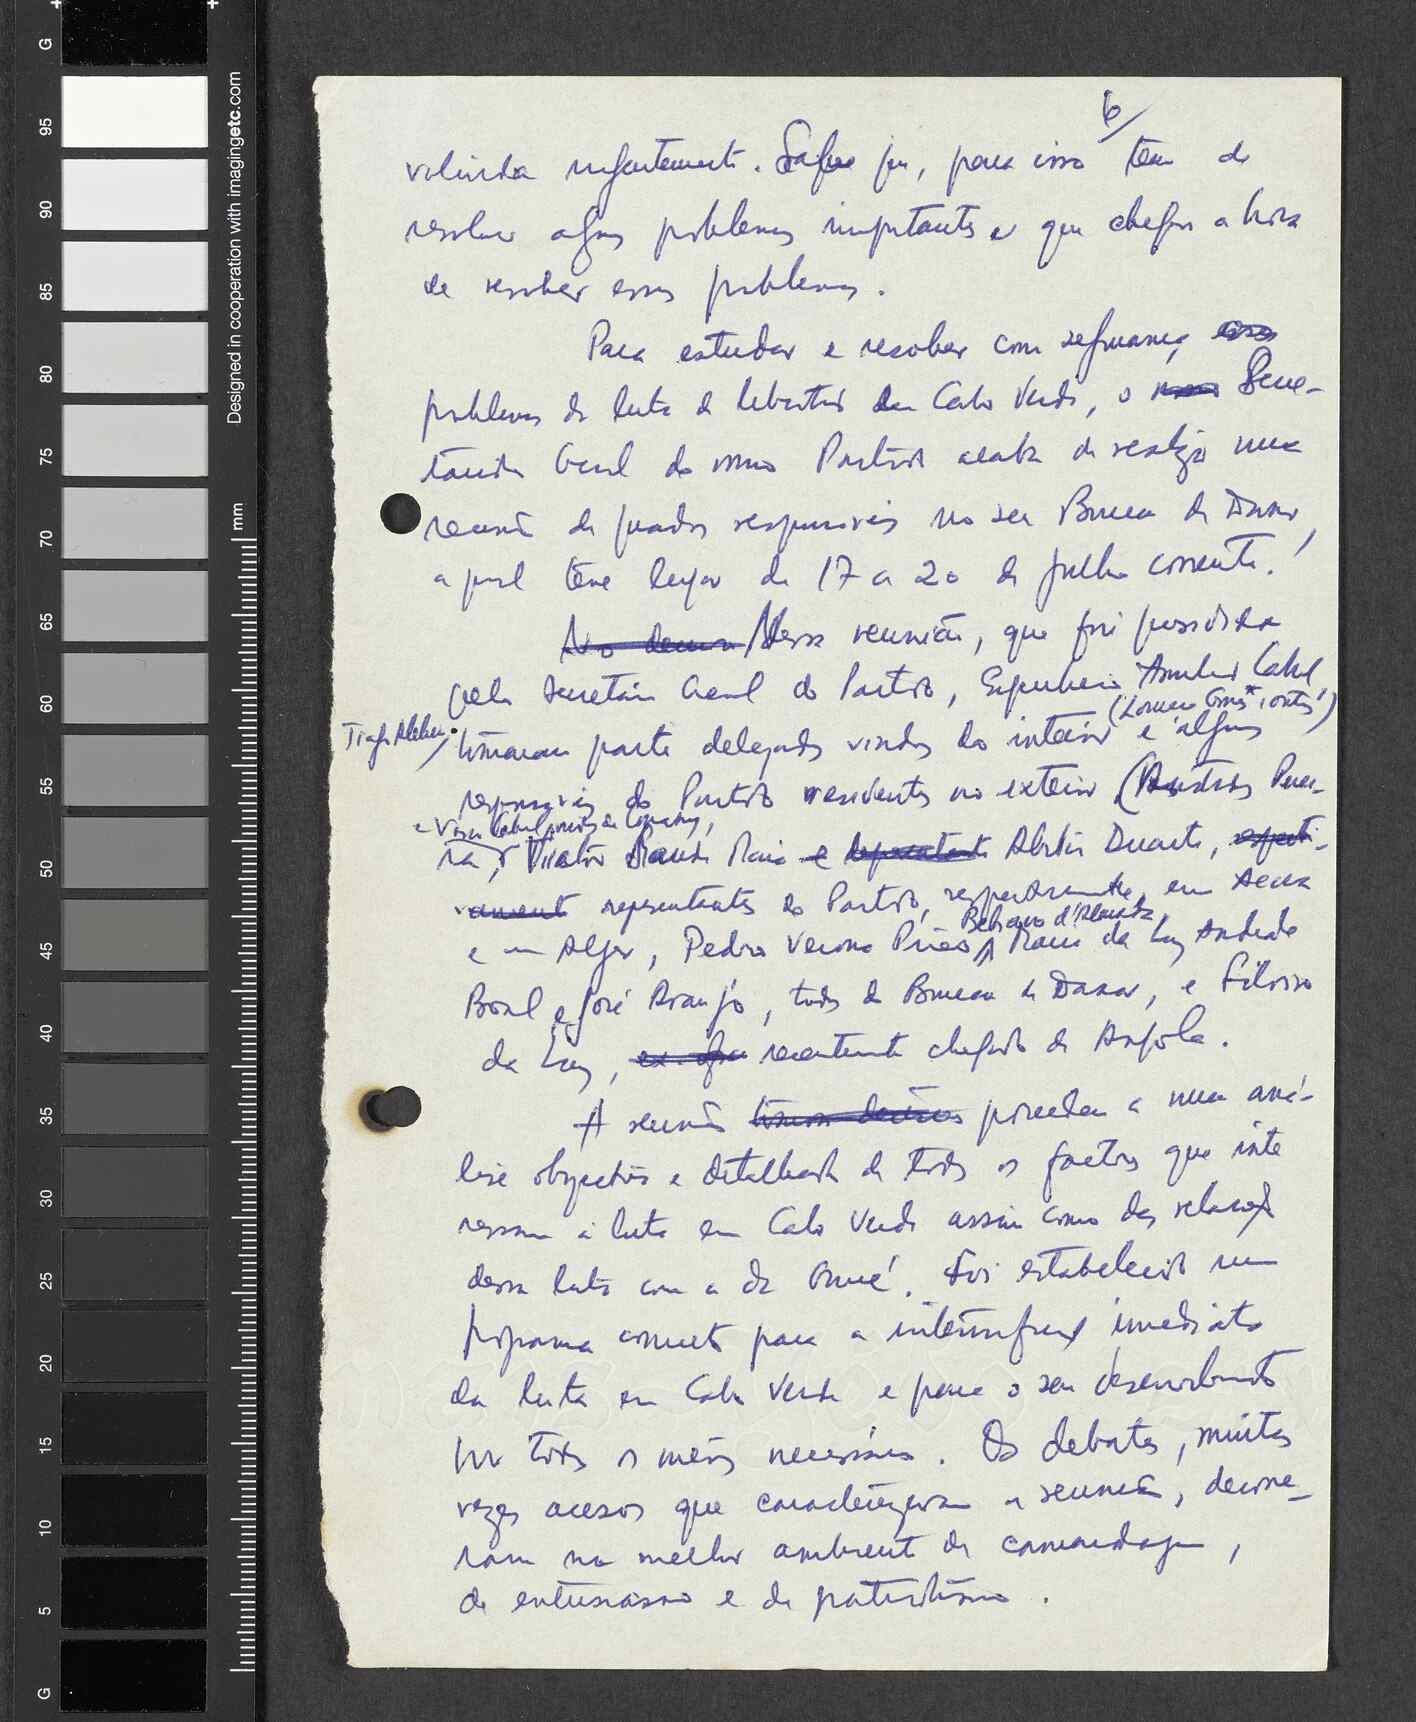 6/
volvida . Sabe que, para isso tem de
resolver alguns problemas importantes e que chegou a hora
de resolver esses problemas.
Para estudar e resolver com segurança
problemas da luta de libertação em Cabo Verde, o Secre-
tariado Geral do nosso Partido acaba de realizar uma
reunião de quadros responsáveis no seu Bureau de Dakar,
a qual teve lugar de 17 a 20 de Julho corrente.
No decurso Nessa reunião, que foi presidida
pelo Secretário Geral do Partido, Engenheiro Amilcar Cabral
tomaram parte delegados vindos do interior e alguns
responsáveis do Partido residentes no exterior (Aristides Perei-
ra, Maria e Abílio Duarte,
representantes do Partido, respectivamente, em
e em Alger, Pedro Verona Pires Maria da Luz Andrade
Boal e José Araujo, todos do Bureau de Dakar, e Silvino
da Luz, recentemente chegado de Angola.
A reunião procedeu a uma aná-
lise objectiva e detalhada de todos os factores que inte
ressam à luta em Cabo Verde assim como das relações
dessa luta com a da Guiné. Foi estabelecido um
programa concreto para a intensificação imediata
da luta em Cabo Verde e para o seu desenvolvimento
por todos os meios necessários. Os debates, muitas
vezes acesos que caracterizaram a reunião, decorre-
ram no melhor ambiente de camaradagem,
de entusiasmo e de patriotismo.
Designed in cooperation with imagingetc.com
mm
G
95
90
85
80
75
70
65
60
55
50
45
40
35
30
25
20
15
10
5
G